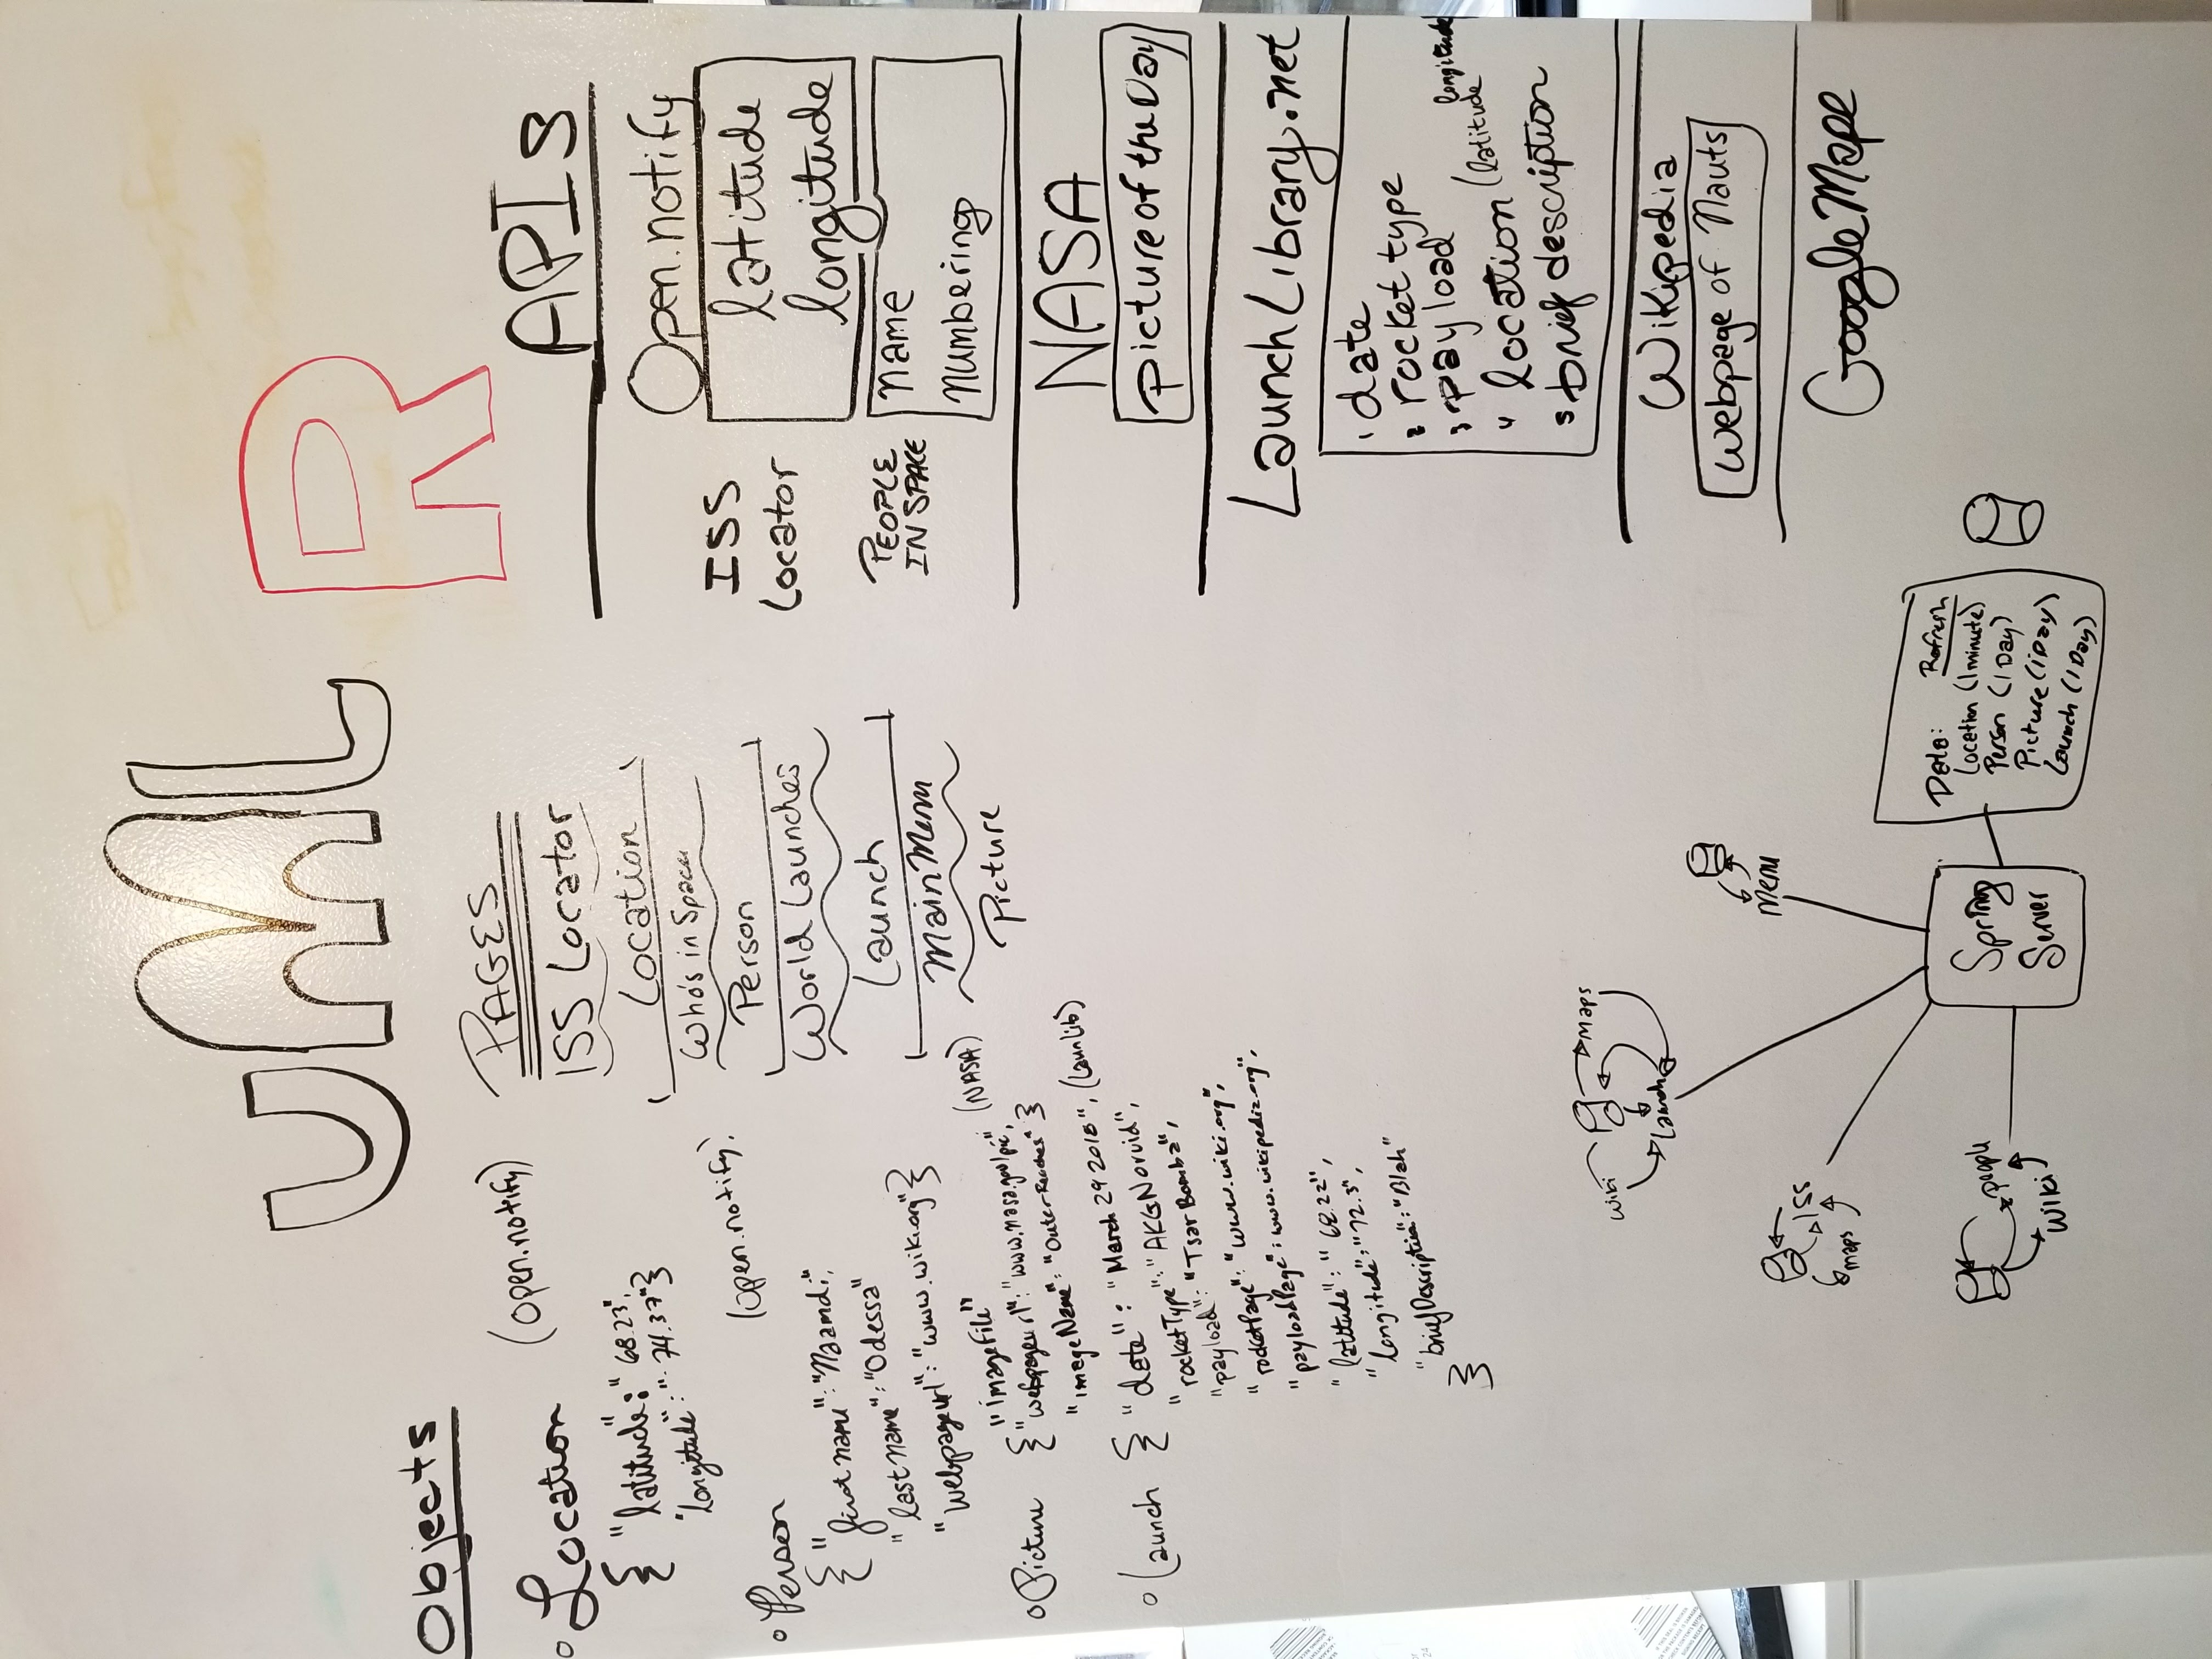 UML R
Objects
Location (open.notify)
{ "latitude": "68.23",
"longitude": "-74.37"}
Person (open.notify)
{ "first name": "Naamdi",
"last name": "Odessa"
"webpageurl": "www.wiki.org"}
"imageFile"
Picture {"webpageurl": "www.nasa.gov/pic", (NASA)
"imageName": "OuterReaches" }
Launch { "date": "March 29 2018", (LaunLib)
"rocketType": "AKGNorvid",
"payload": "Tsar Bomba",
"rocketPage": "www.wiki.org",
"payloadPage": www.wikipedia.org",
"latitude": "68.22",
"longitude": "72.3",
"briefDescription": "Blah"
}
PAGES
ISS Locator
Location
Who's in Space
Person
World Launches
Launch
Main Menu
Picture
APIs
Open.notify
ISS
Locator
latitude
longitude
PEOPLE
IN SPACE
name
numbering
NASA
picture of the Day
LaunchLibrary.net
1 date
2 rocket type
3 payload
4 location (latitude longitude
5 brief description
Wikipedia
webpage of Nauts
Google Maps
wiki
maps
Launch
Menu
ISS
maps
people
wiki
Spring
Server
Data: Refresh
Location (1 minute)
Person (1 Day)
Picture (1 Day)
Launch (1 Day)